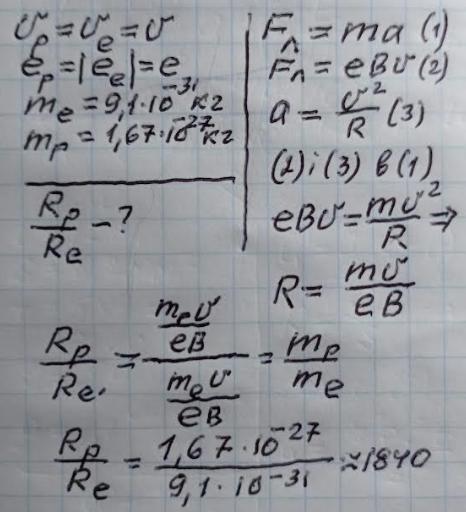 υp = υe = υ
ep = |ee| = e
me = 9,1·10⁻³¹ кг
mp = 1,67·10⁻²⁷ кг
Rp/Re - ?
Fл = ma (1)
Fл = eBυ (2)
a = υ²/R (3)
(2) і (3) в (1)
eBυ = mυ²/R ⇒
R = mυ/eB
Rp/Re = (mpυ/eB)/(meυ/eB) = mp/me
Rp/Re = 1,67·10⁻²⁷/9,1·10⁻³¹ ≈ 1840